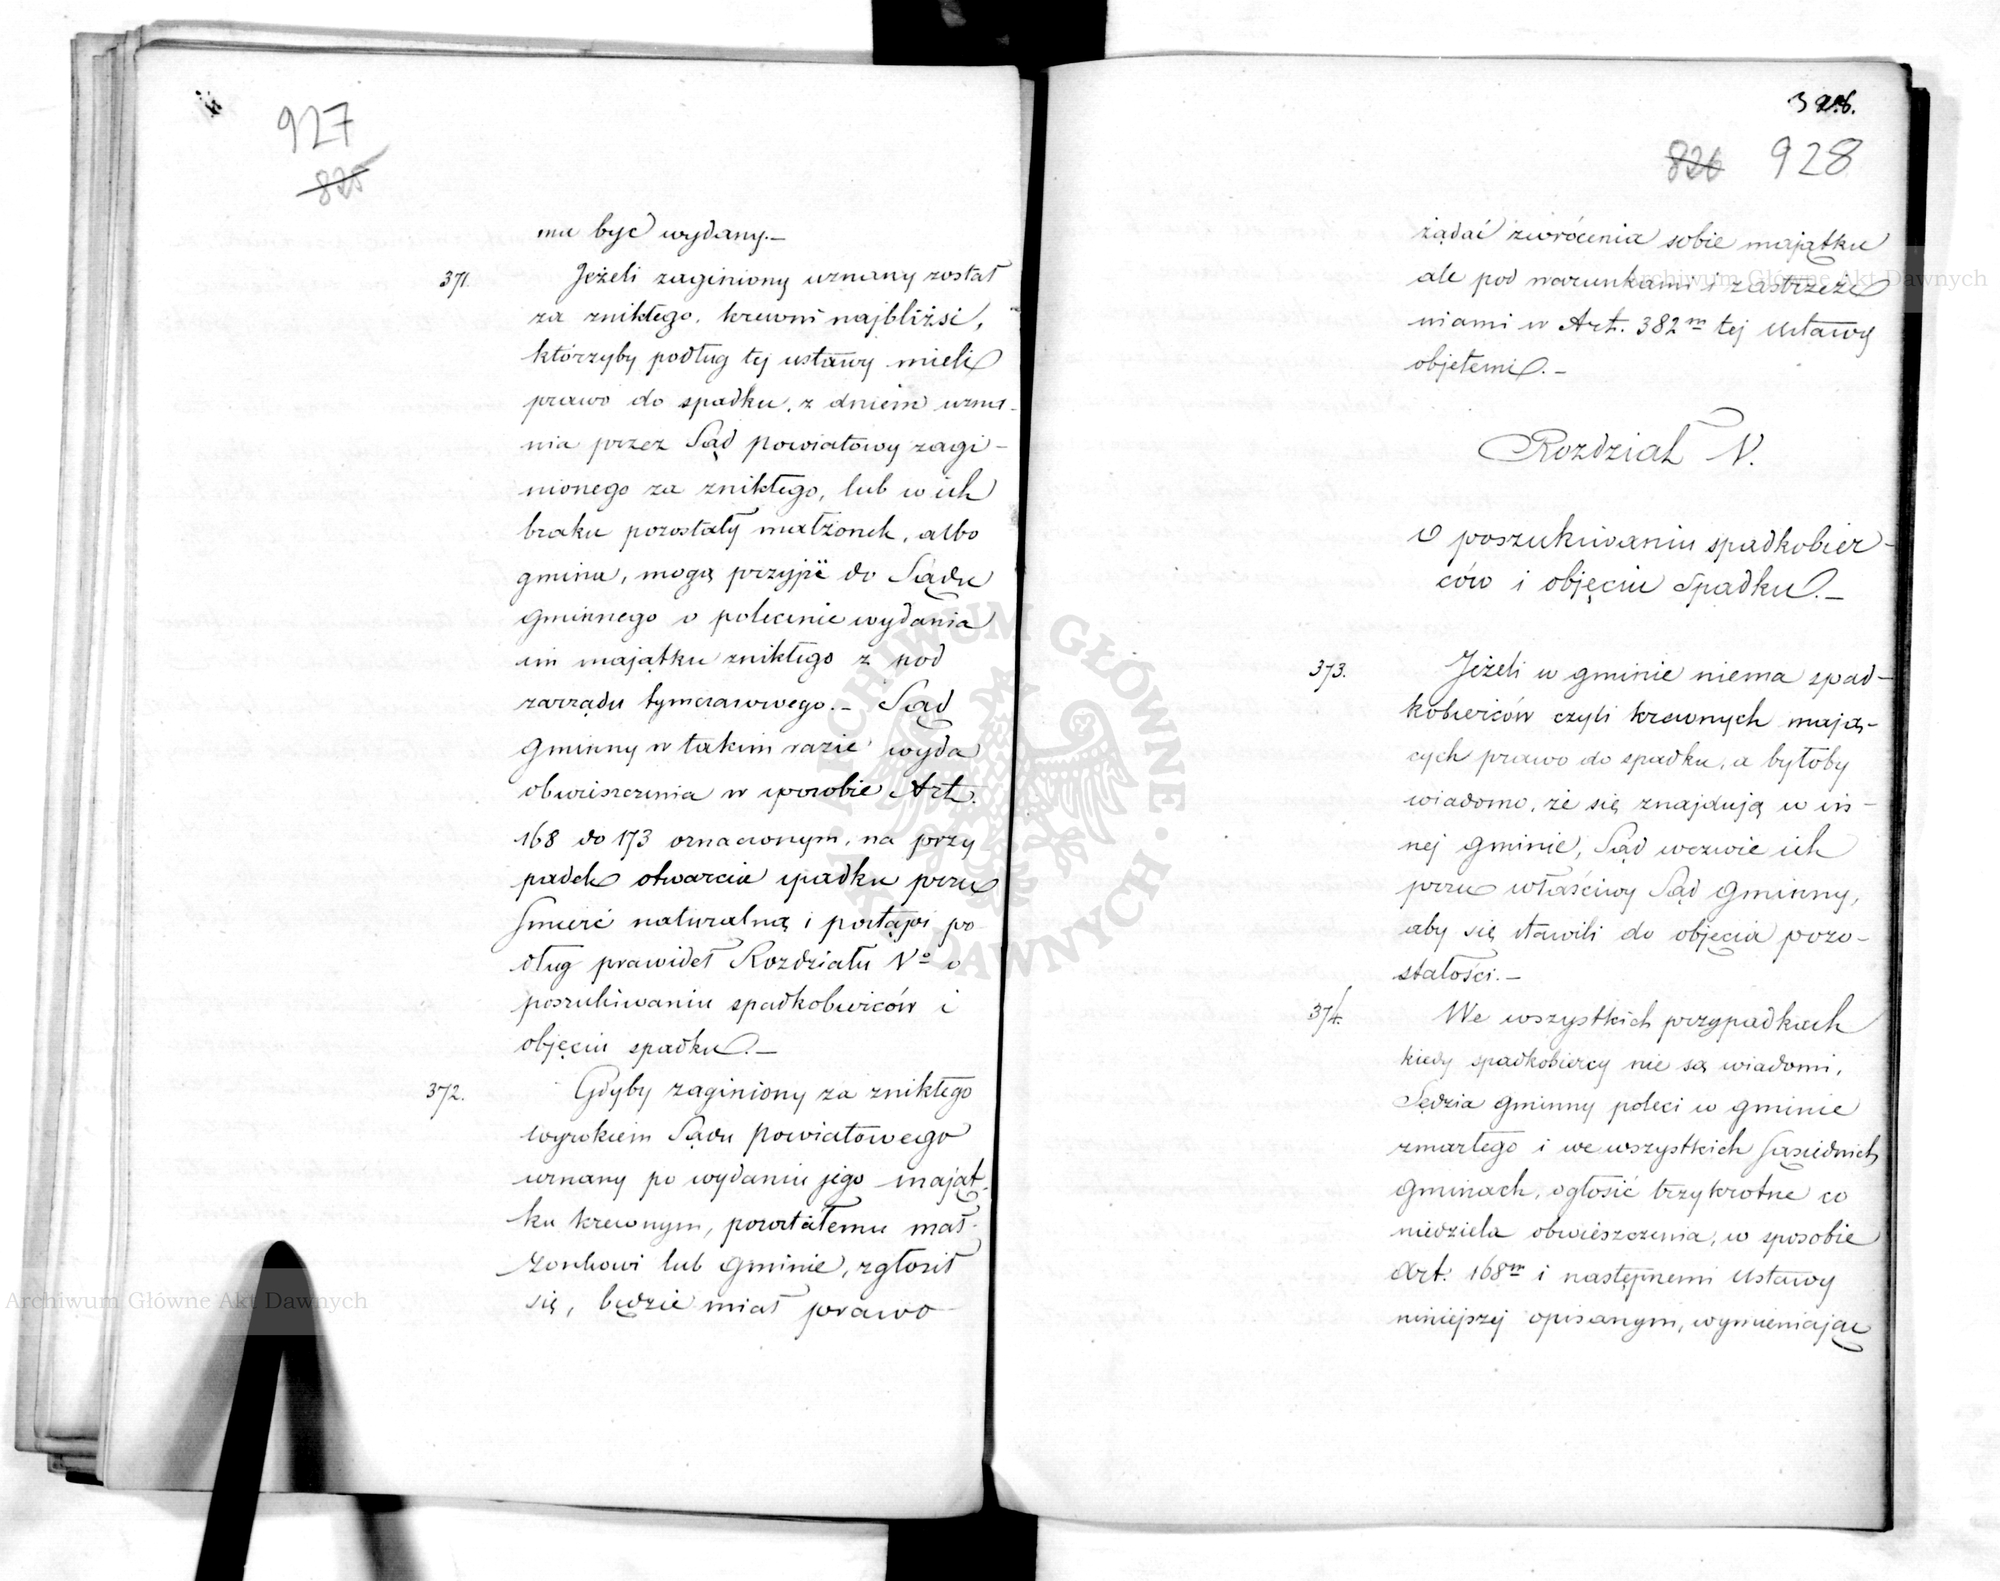 927
825
mu być wydany.—
371. Jeżeli zaginiony uznany został
za znikłego, krewni najbliżsi,
którzyby podług tej ustawy mieli
prawo do spadku, z dniem uzna-
nia przez Sąd powiatowy zagi-
nionego za znikłego, lub w ich
braku pozostały małżonek, albo
gmina, mogą przyjść do Sądu
Gminnego o polecenie wydania
im majątku znikłego z pod
zarządu tymczasowego.— Sąd
Gminny w takim razie wyda
obwieszczenia w sposobie Art.
168 do 173 oznaczonym, na przy
padek otwarcia spadku przez
śmierć naturalną i postąpi po-
dług prawideł Rozdziału Vº o
poszukiwaniu spadkobierców i
objęciu spadku.—
372. Gdyby zaginiony za znikłego
wyrokiem Sądu powiatowego
uznany po wydaniu jego mająt-
ku krewnym, pozostałemu mał-
żonkowi lub Gminie, zgłosił
się, będzie miał prawo
328.
826 928
żądać zwrócenia sobie majątku
ale pod warunkami i zastrzeże
niami w Art. 382m tej Ustawy
objętemi.—
Rozdział V.
O poszukiwaniu spadkobier-
ców i objęciu Spadku.—
373. Jeżeli w gminie niema spad-
kobierców czyli krewnych mają-
cych prawo do spadku, a byłoby
wiadomo, że się znajdują w in-
nej Gminie, Sąd wezwie ich
przez właściwy Sąd Gminny,
aby się stawili do objęcia pozo-
stałości.—
374. We wszystkich przypadkach
kiedy spadkobiercy nie są wiadomi,
Sędzia Gminny poleci w gminie
zmarłego i we wszystkich sąsiednich
Gminach, ogłosić trzykrotne co
niedziela obwieszczenia, w sposobie
Art. 168m i następnemi Ustawy
niniejszej opisanym, wymieniając
ARCHIWUM GŁÓWNE AKT DAWNYCH
Archiwum Główne Akt Dawnych
Archiwum Główne Akt Dawnych